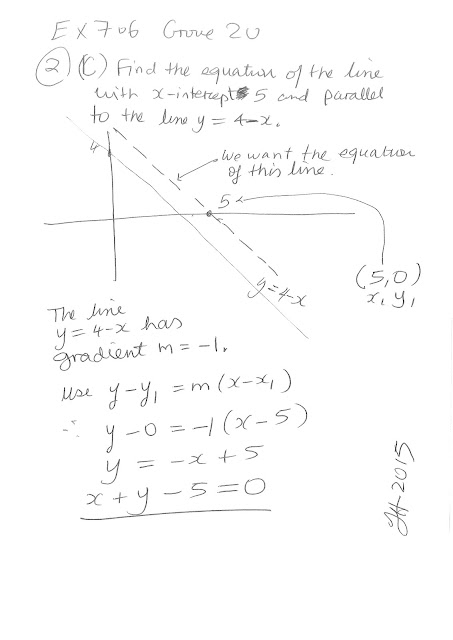 EX 7.06 Grove 2U
② (C) Find the equation of the line
with x-intercept 5 and parallel
to the line y = 4-x.
4
we want the equation
of this line.
5
(5,0)
x₁ y₁
y=4-x
The line
y=4-x has
gradient m = -1.
use y-y₁ = m(x-x₁)
∴ y-0 = -1(x-5)
y = -x+5
x+y-5=0
JH-2015